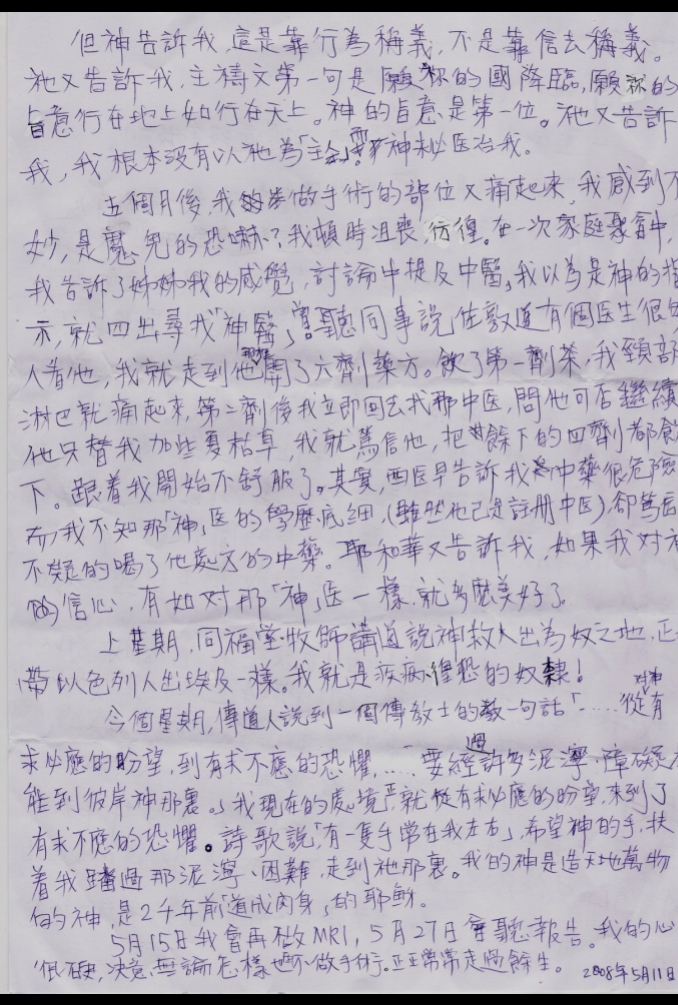 但神告訴我,這是靠行為稱義,不是靠信去稱義。
祂又告訴我,主禱文第一句是願祢的國降臨,願祢的
旨意行在地上如行在天上。神的旨意是第一位。祂又告訴
我,我根本沒有以祂為「主」,神必医治我。
五個月後,我做手術的部位又痛起來,我感到不
妙,是魔鬼的恐嚇?我頓時沮喪,彷徨。在一次家庭聚會中,
我告訴了姊姊我的感覺,討論中提及中醫,我以為是神的指
示,就四出尋找「神醫」,曾聽同事說佐敦道有個医生很多
人看他,我就走到他那裡開了六劑藥方。飲了第一劑茶,我頸部
淋巴就痛起來,第二劑後我立即回去找那中医,問他可否繼續
他只替我加些夏枯草,我就篤信他,把餘下的四劑都飲
下。跟着我開始不舒服了。其實,西医早告訴我中藥很危險
而我不知那「神」医的學歷底細,(雖然他已是註册中医)卻篤信
不疑的喝了他處方的中藥。耶和華又告訴我,如果我对神
的信心,有如对那「神」医一樣,就多麼美好了
上星期,同福堂牧師講道說神救人出為奴之地,正
帶以色列人出埃及一樣。我就是疾病、惶恐的奴隸!
今個星期,傳道人說到一個傳教士的一句話「……從对神有
求必應的盼望,到有求不應的恐懼,……要經過許多泥濘、障礙
能到彼岸神那裏。」我現在的處境正就從有求必應的盼望,來到了
有求不應的恐懼。詩歌說「有一隻手常在我左右」,希望神的手,扶
着我踏過那泥濘、困難,走到祂那裏。我的神是造天地萬物
的神,是2千年前「道成肉身」的耶穌。
5月15日我會再做MRI,5月27日會聽報告。我的心
很硬,决意無論怎樣也不做手術。正正常常走過餘生。 2008年5月11日